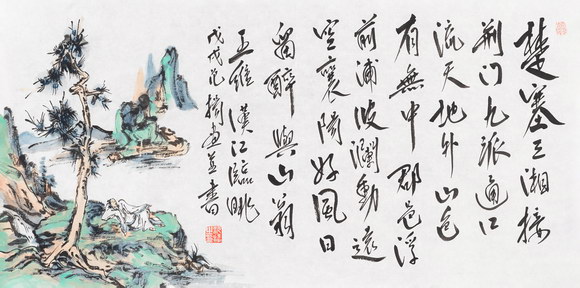 楚塞三湘接
荆门九派通江
流天地外山色
有無中郡邑浮
前浦波瀾動遠
空襄陽好風日
留醉與山翁
王維漢江臨眺
戊戌